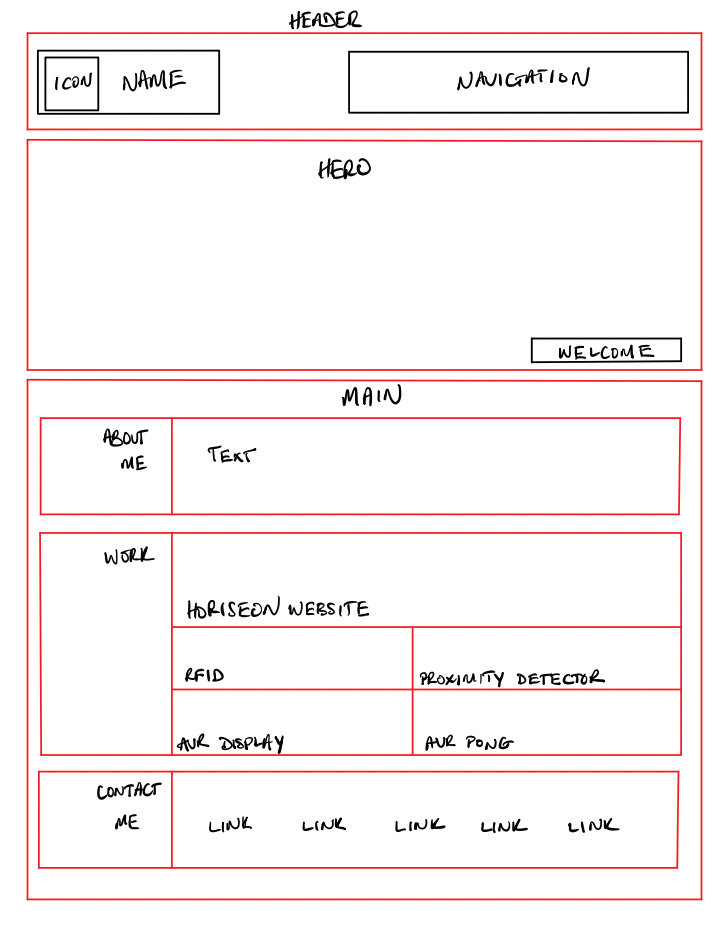 HEADER
ICON NAME
NAVIGATION
HERO
WELCOME
MAIN
ABOUT
ME
TEXT
WORK
HORISEON WEBSITE
RFID
PROXIMITY DETECTOR
AVR DISPLAY
AVR PONG
CONTACT
ME
LINK LINK LINK LINK LINK